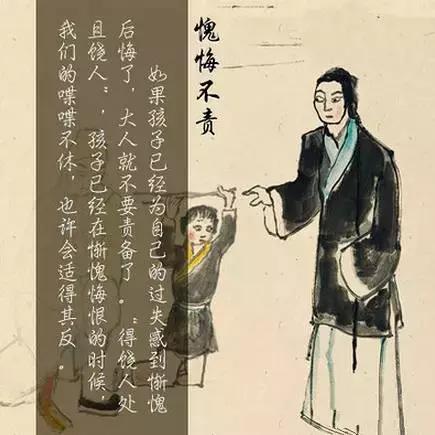 愧悔不责
如果孩子已经为自己的过失感到惭愧
后悔了，大人就不要责备了。“得饶人处
且饶人”，孩子已经在惭愧悔恨的时候，
我们的喋喋不休，也许会适得其反。